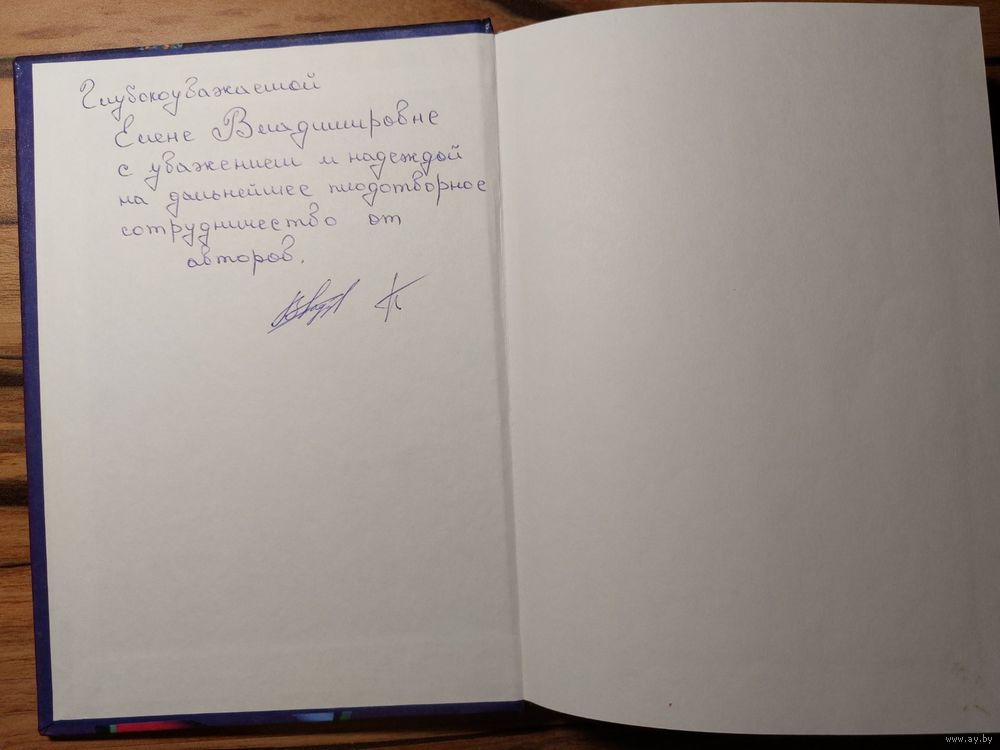 Глубокоуважаемой
Елене Владимировне
с уважением и надеждой
на дальнейшее плодотворное
сотрудничество от
авторов.
www.ay.by